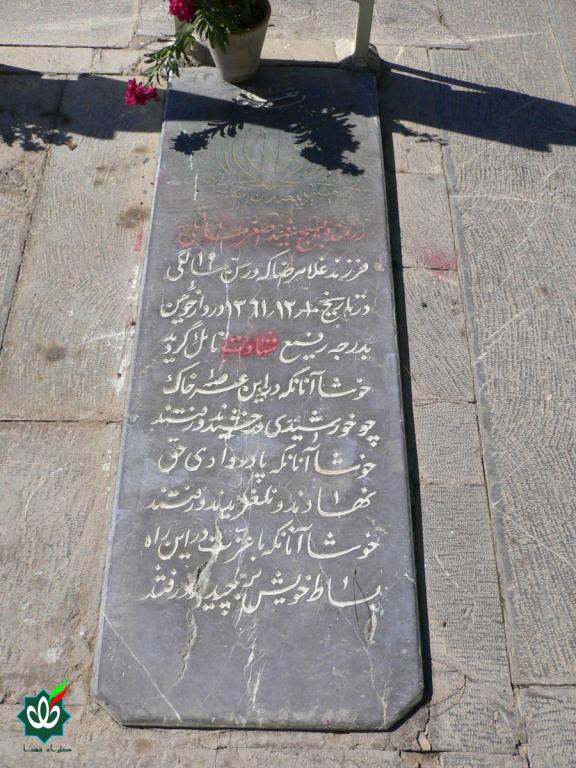 شهید اصغر
فرزند غلامرضا که در سن ۱۹ سالگی
در تاریخ ۱۳۶۱/۱۲/۱۰ در دارخوین
بدرجه رفیع شهادت نائل گردید
خوشا آنانکه در این عرصه خاک
چو خورشیدی درخشیدند و رفتند
خوشا آنانکه پا در وادی حق
نهادند و نلغزیدند و رفتند
خوشا آنانکه با عزت در این راه
بساط خویش برچیدند و رفتند